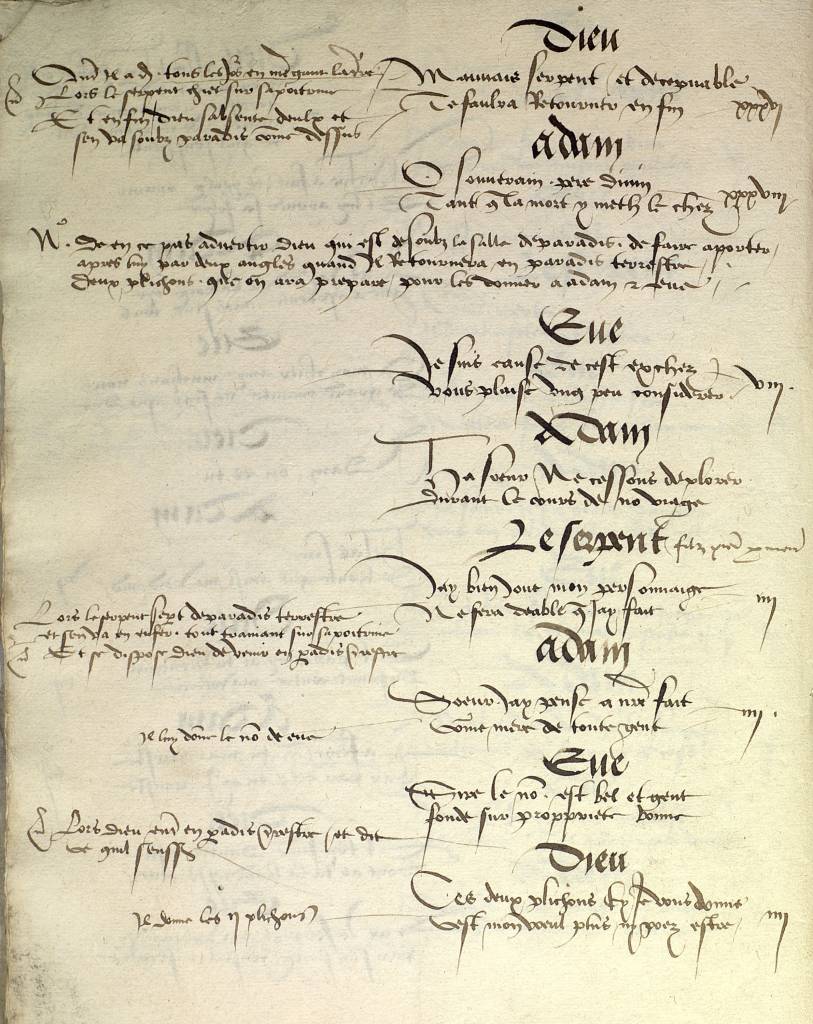 Dieu
tous les
Lors le serpent chiet sur sa poitrine
Et en fin dieu sabsente deulx et
sen va soubz paradis come dessus
Mauvais serpent et decepvable
Te faulra Retourner en fin xxxvi
adam
O souverain pere divin
Tant q la mort y meth le chez xxxviii
No. de en ce pas advertir dieu qui est desoubz la salle de paradis de faire aporter
apres luy par deux angles quand Il Retournera en paradis terrestre
deux plichons que on ara prepare pour les donner a adam et eve
Eve
Je suis cause de cest exchez
Vous plaise ung peu considerer viii
Adam
Ma soeur Ne cessons de plorer
durant le cours de no viage
Le serpent
Jay bien Joue mon personnaige
Ne fera deable q Jay fait iiii
Lors le serpent sort de paradis terrestre
et sen va en enfer tout trainant sur sa poitrine
Et se dispose dieu de venir en padis trestre
adam
Soeur Jay pense a nre fait
come mere de toute gent iiii
Il luy done le no de eve
Eve
Sire le no est bel et gent
fonde sur proppriete bonne
Lors dieu en padis trestre et dit
ce quil sensst
Dieu
Ces deux plichons icy Je vous donne
cest mon voeul plus ny poez estre iiii
Il done les ii plichons